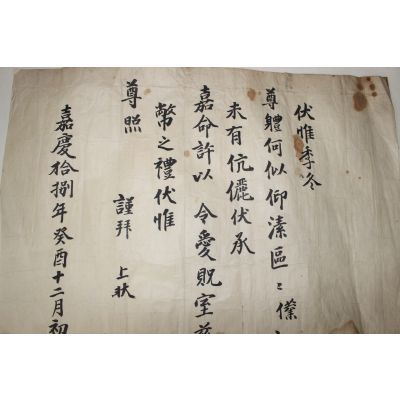 伏惟季冬
尊體何似仰溸區〻僕
未有伉儷伏承
嘉命許以 令愛貺室玆
幣之禮伏惟
尊照 謹拜 上狀
嘉慶拾捌年癸酉十二月初